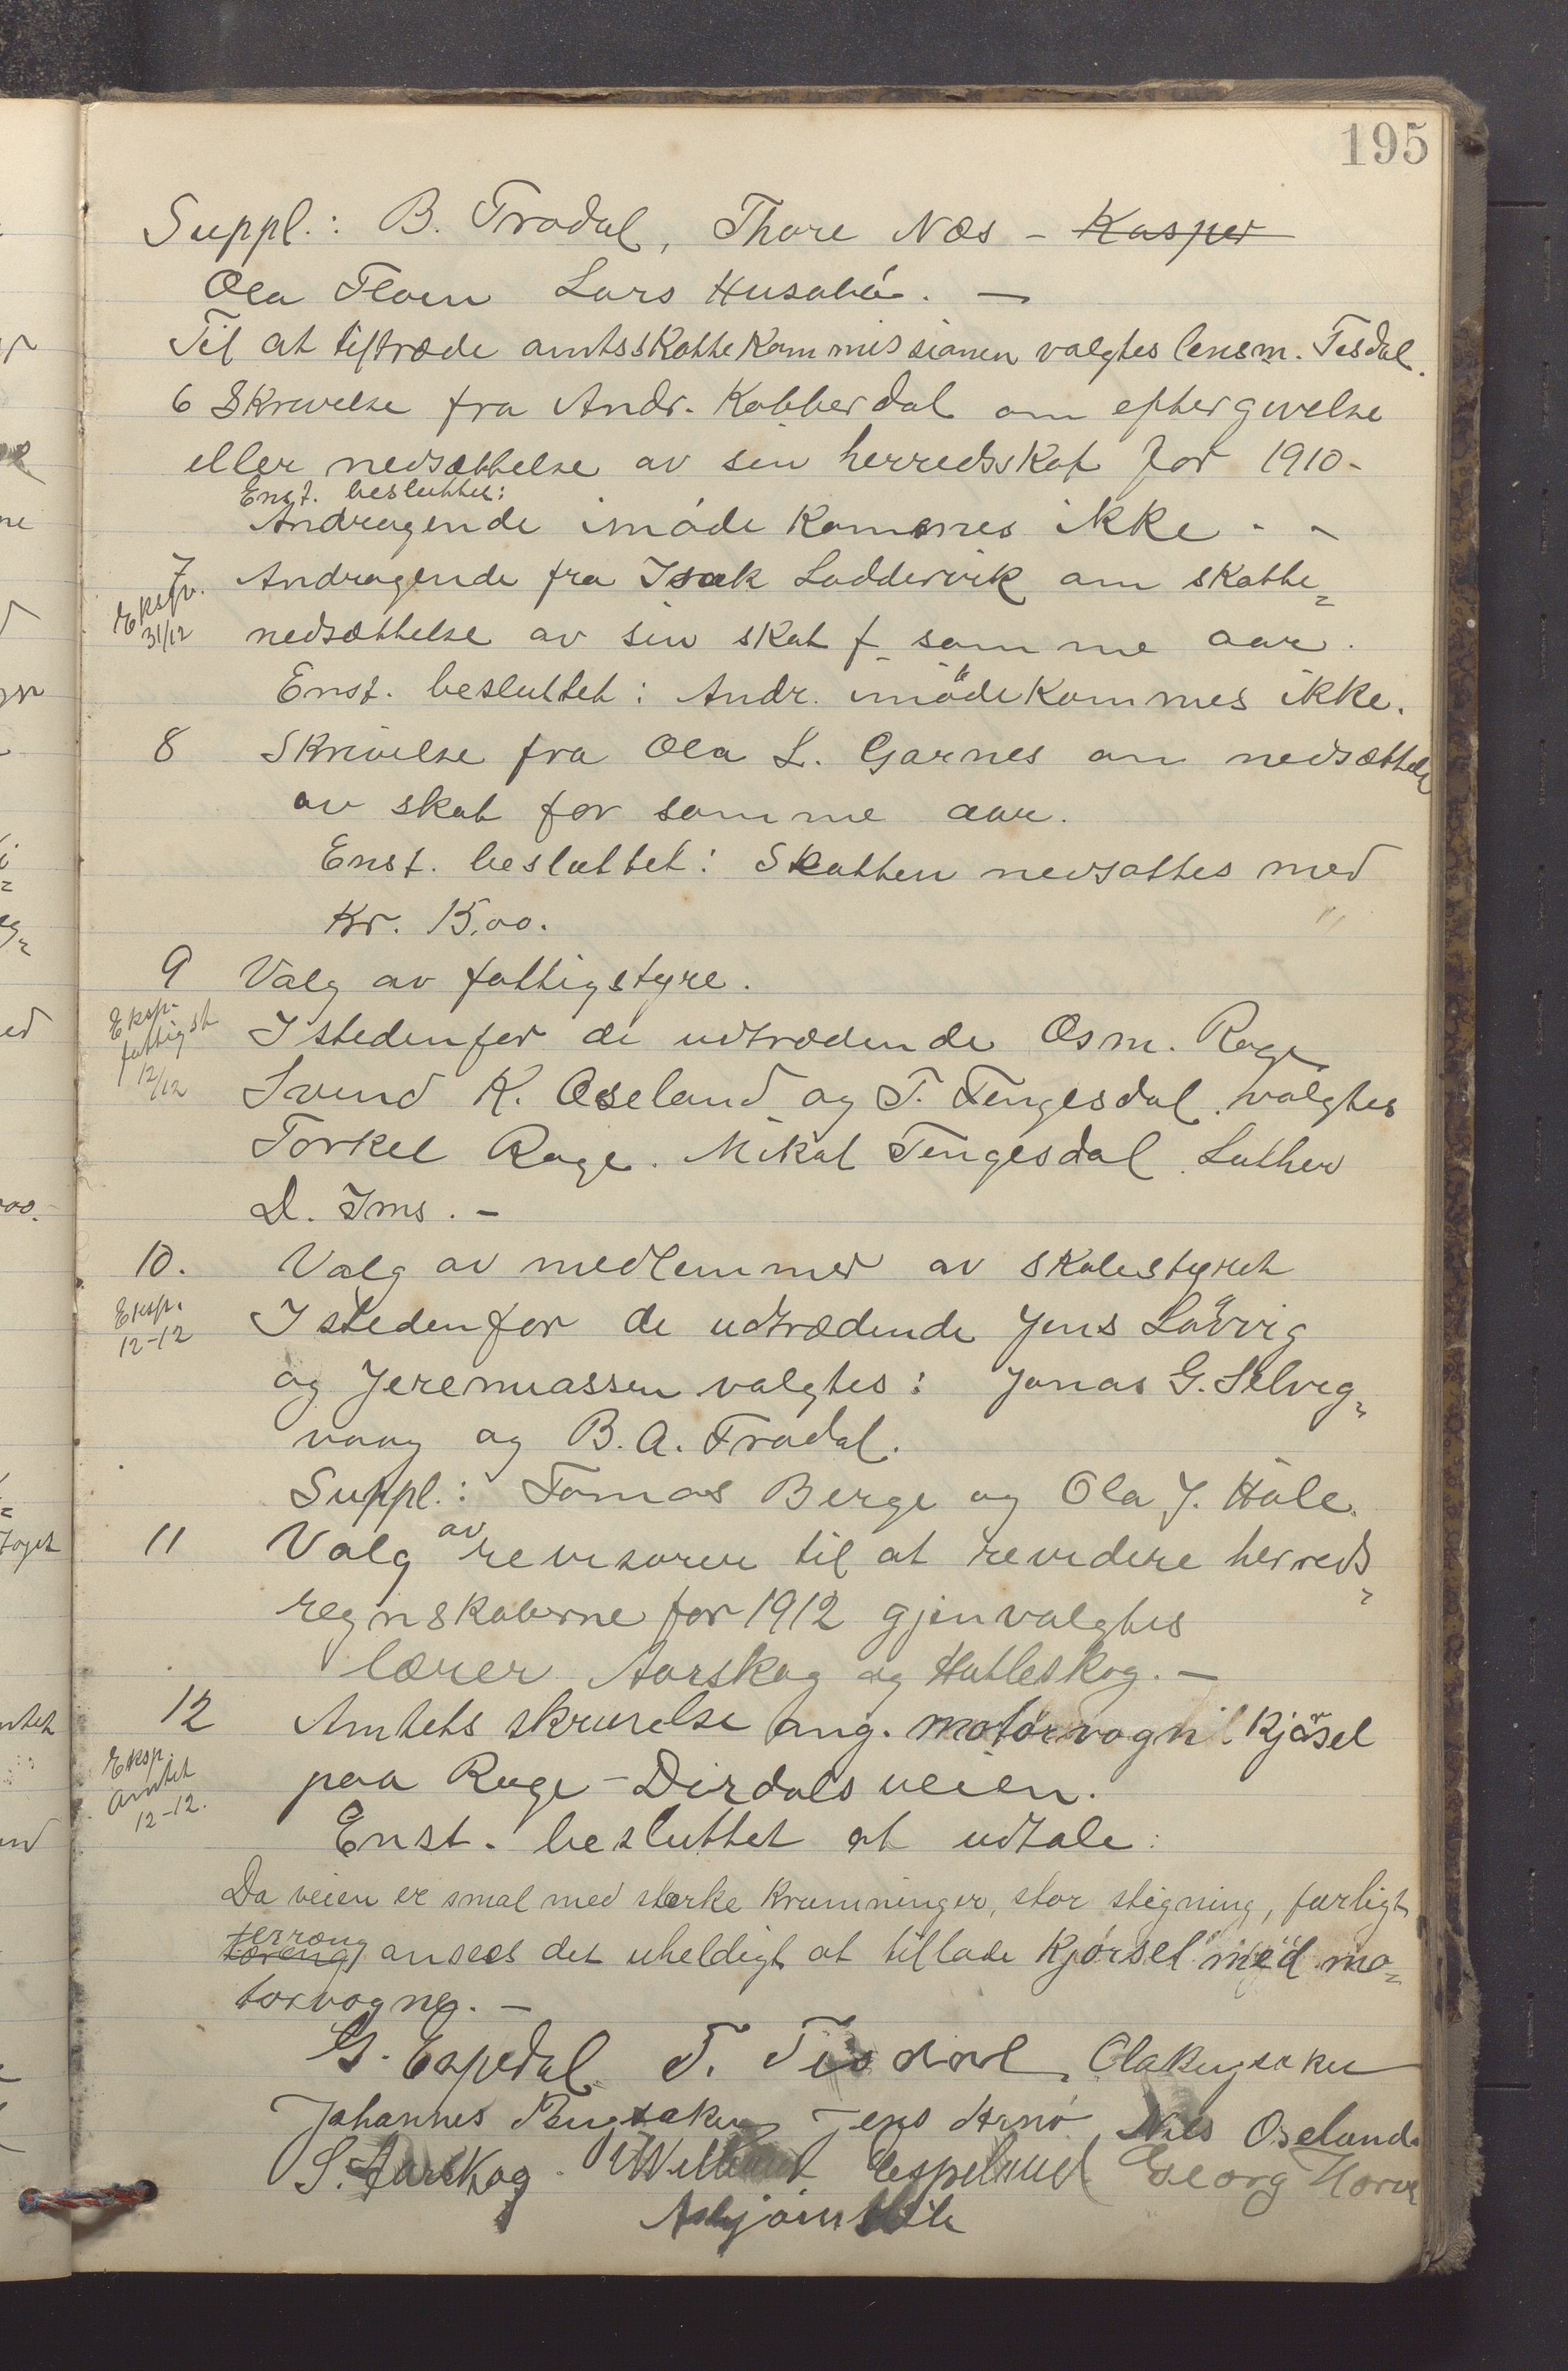 195
Suppl.: B. Frodal, Thore Næs - Kasper
Ola Floen Lars Husabø. -
Til at tiltræde amtsskattekommissionen valgtes lensm. Tisdal.
6 Skrivelse fra Andr. Kobberdal om eftergivelse
eller nedsættelse av sin herredsskat for 1910-
Enst. besluttet:
Andragende imødekommes ikke. -
7 Andragende fra Isak Loddervik om skatte=
Eksp. 31/12
nedsættelse av sin skat f. samme aar.
Enst. besluttet: Andr. imødekommes ikke.
8 Skrivelse fra Ola L. Garnes om nedsættelse
av skat for samme aar.
Enst. besluttet: Skatten nedsattes med
Kr. 15,00.
9 Valg av fattigstyre.
Eksp. fattigst 12/12
I stedenfor de udtrædende Osm. Rage
Svend K. Aseland og T. Tengesdal valgtes
Torkel Rage. Mikal Tengesdal Luther
D. Ims. -
10. Valg av medlemmer av skolestyret
Eksp. 12-12
I stedenfor de udtrædende Jens Løvvig
og Jeremiassen valgtes: Jonas G. Selvig=
vaag og B. A. Frodal.
Suppl.: Tomas Berge og Ola J. Høle.
11 Valg av revisorer til at revidere herreds=
regnskaberne for 1912 gjenvalgtes
lærer Aarskog og Hatleskog. -
12 Amtets skrivelse ang. motorvogn kjørsel
Eksp. amtet 12-12.
paa Rage-Dirdalsveien.
Enst. besluttet at udtale:
Da veien er smal med sterke krumninger, stor stigning, farligt
terræng ansees det uheldigt at tillade kjørsel med mo=
torvogne. -
G. Espedal T. Tisdal, Ola Bergsaker
Johannes Bergsaker Jens Arnø Nils Oseland
S. Aarskog Espeland Georg
Asbjørn Høle